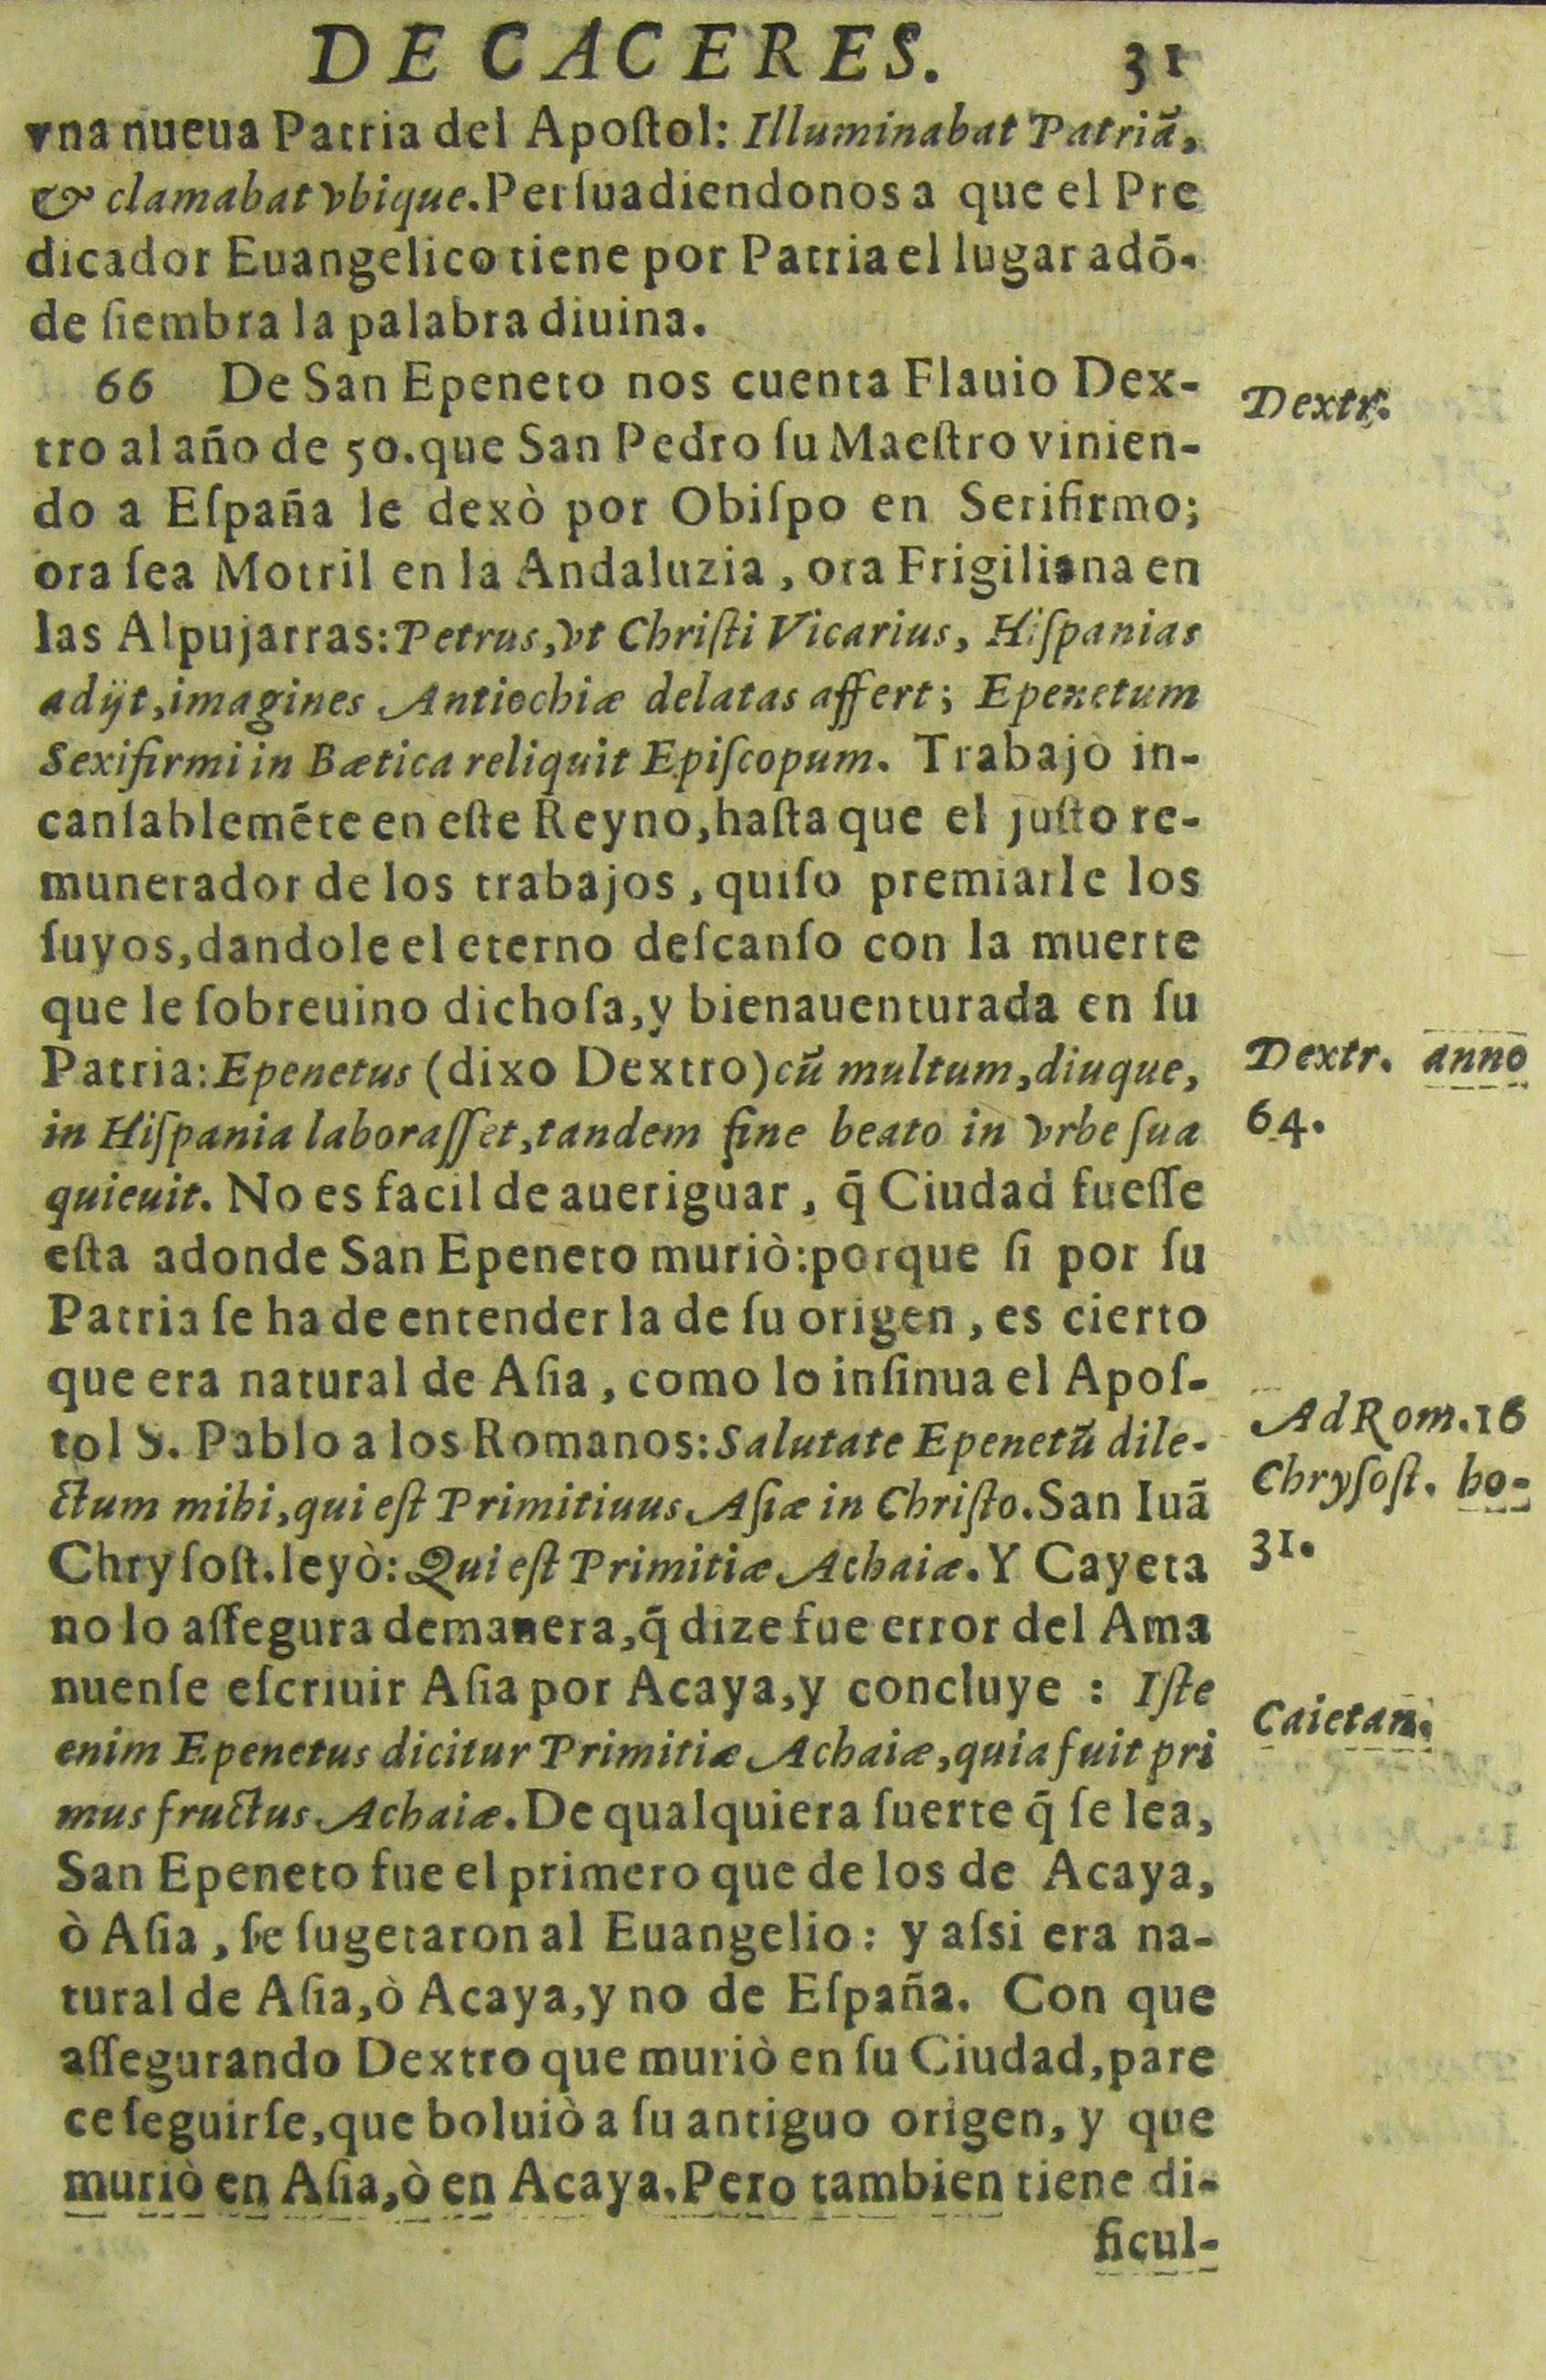 DE CACERES. 31
vna nueua Patria del Apoſtol: Illuminabat Patriã,
& clamabat vbique. Perſuadiendonos a que el Pre
dicador Euangelico tiene por Patria el lugar adõ-
de ſiembra la palabra diuina.
66 De San Epeneto nos cuenta Flauio Dex-
Dextr.
tro al año de 50. que San Pedro ſu Maeſtro vinien-
do a Eſpaña le dexò por Obiſpo en Serifirmo;
ora ſea Motril en la Andaluzia, ora Frigiliana en
las Alpujarras: Petrus, vt Chriſti Vicarius, Hiſpanias
adijt, imagines Antiochiæ delatas affert; Epenetum
Sexifirmi in Bætica reliquit Epiſcopum. Trabajò in-
canſablemẽte en eſte Reyno, haſta que el juſto re-
munerador de los trabajos, quiſo premiarle los
ſuyos, dandole el eterno deſcanſo con la muerte
que le ſobreuino dichoſa, y bienauenturada en ſu
Patria: Epenetus (dixo Dextro) cũ multum, diuque,
Dextr. anno
in Hiſpania laboraſſet, tandem fine beato in vrbe ſua
64.
quieuit. No es facil de aueriguar, q̃ Ciudad fueſſe
eſta adonde San Epeneto muriò: porque ſi por ſu
Patria ſe ha de entender la de ſu origen, es cierto
que era natural de Aſia, como lo inſinua el Apoſ-
Ad Rom. 16
tol S. Pablo a los Romanos: Salutate Epenetũ dile-
Chryſoſt. ho-
ctum mihi, qui eſt Primitiuus Aſiæ in Chriſto. San Iuã
31.
Chryſoſt. leyò: Qui eſt Primitiæ Achaiæ. Y Cayeta
no lo aſſegura de manera, q̃ dize fue error del Ama
nuenſe eſcriuir Aſia por Acaya, y concluye : Iſte
Caietan.
enim Epenetus dicitur Primitiæ Achaiæ, quia fuit pri
mus fructus Achaiæ. De qualquiera ſuerte q̃ ſe lea,
San Epeneto fue el primero que de los de Acaya,
ò Aſia, ſe ſugetaron al Euangelio: y aſsi era na-
tural de Aſia, ò Acaya, y no de Eſpaña. Con que
aſſegurando Dextro que muriò en ſu Ciudad, pare
ce ſeguirſe, que boluiò a ſu antiguo origen, y que
muriò en Aſia, ò en Acaya. Pero tambien tiene di-
ficul-